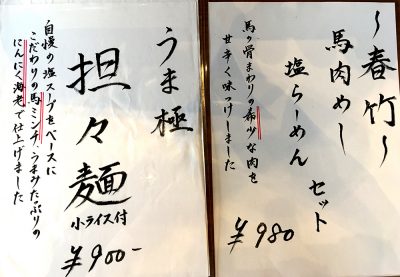 〜春竹〜
馬肉めし
塩らーめん
セット
馬の骨まわりの希少な肉を
甘辛く味つけしました
¥980
うま極
担々麺
小ライス付
¥900-
自慢の塩スープをベースに
こだわりの馬ミンチ、うまみたっぷりの
にんにく海老で仕上げました